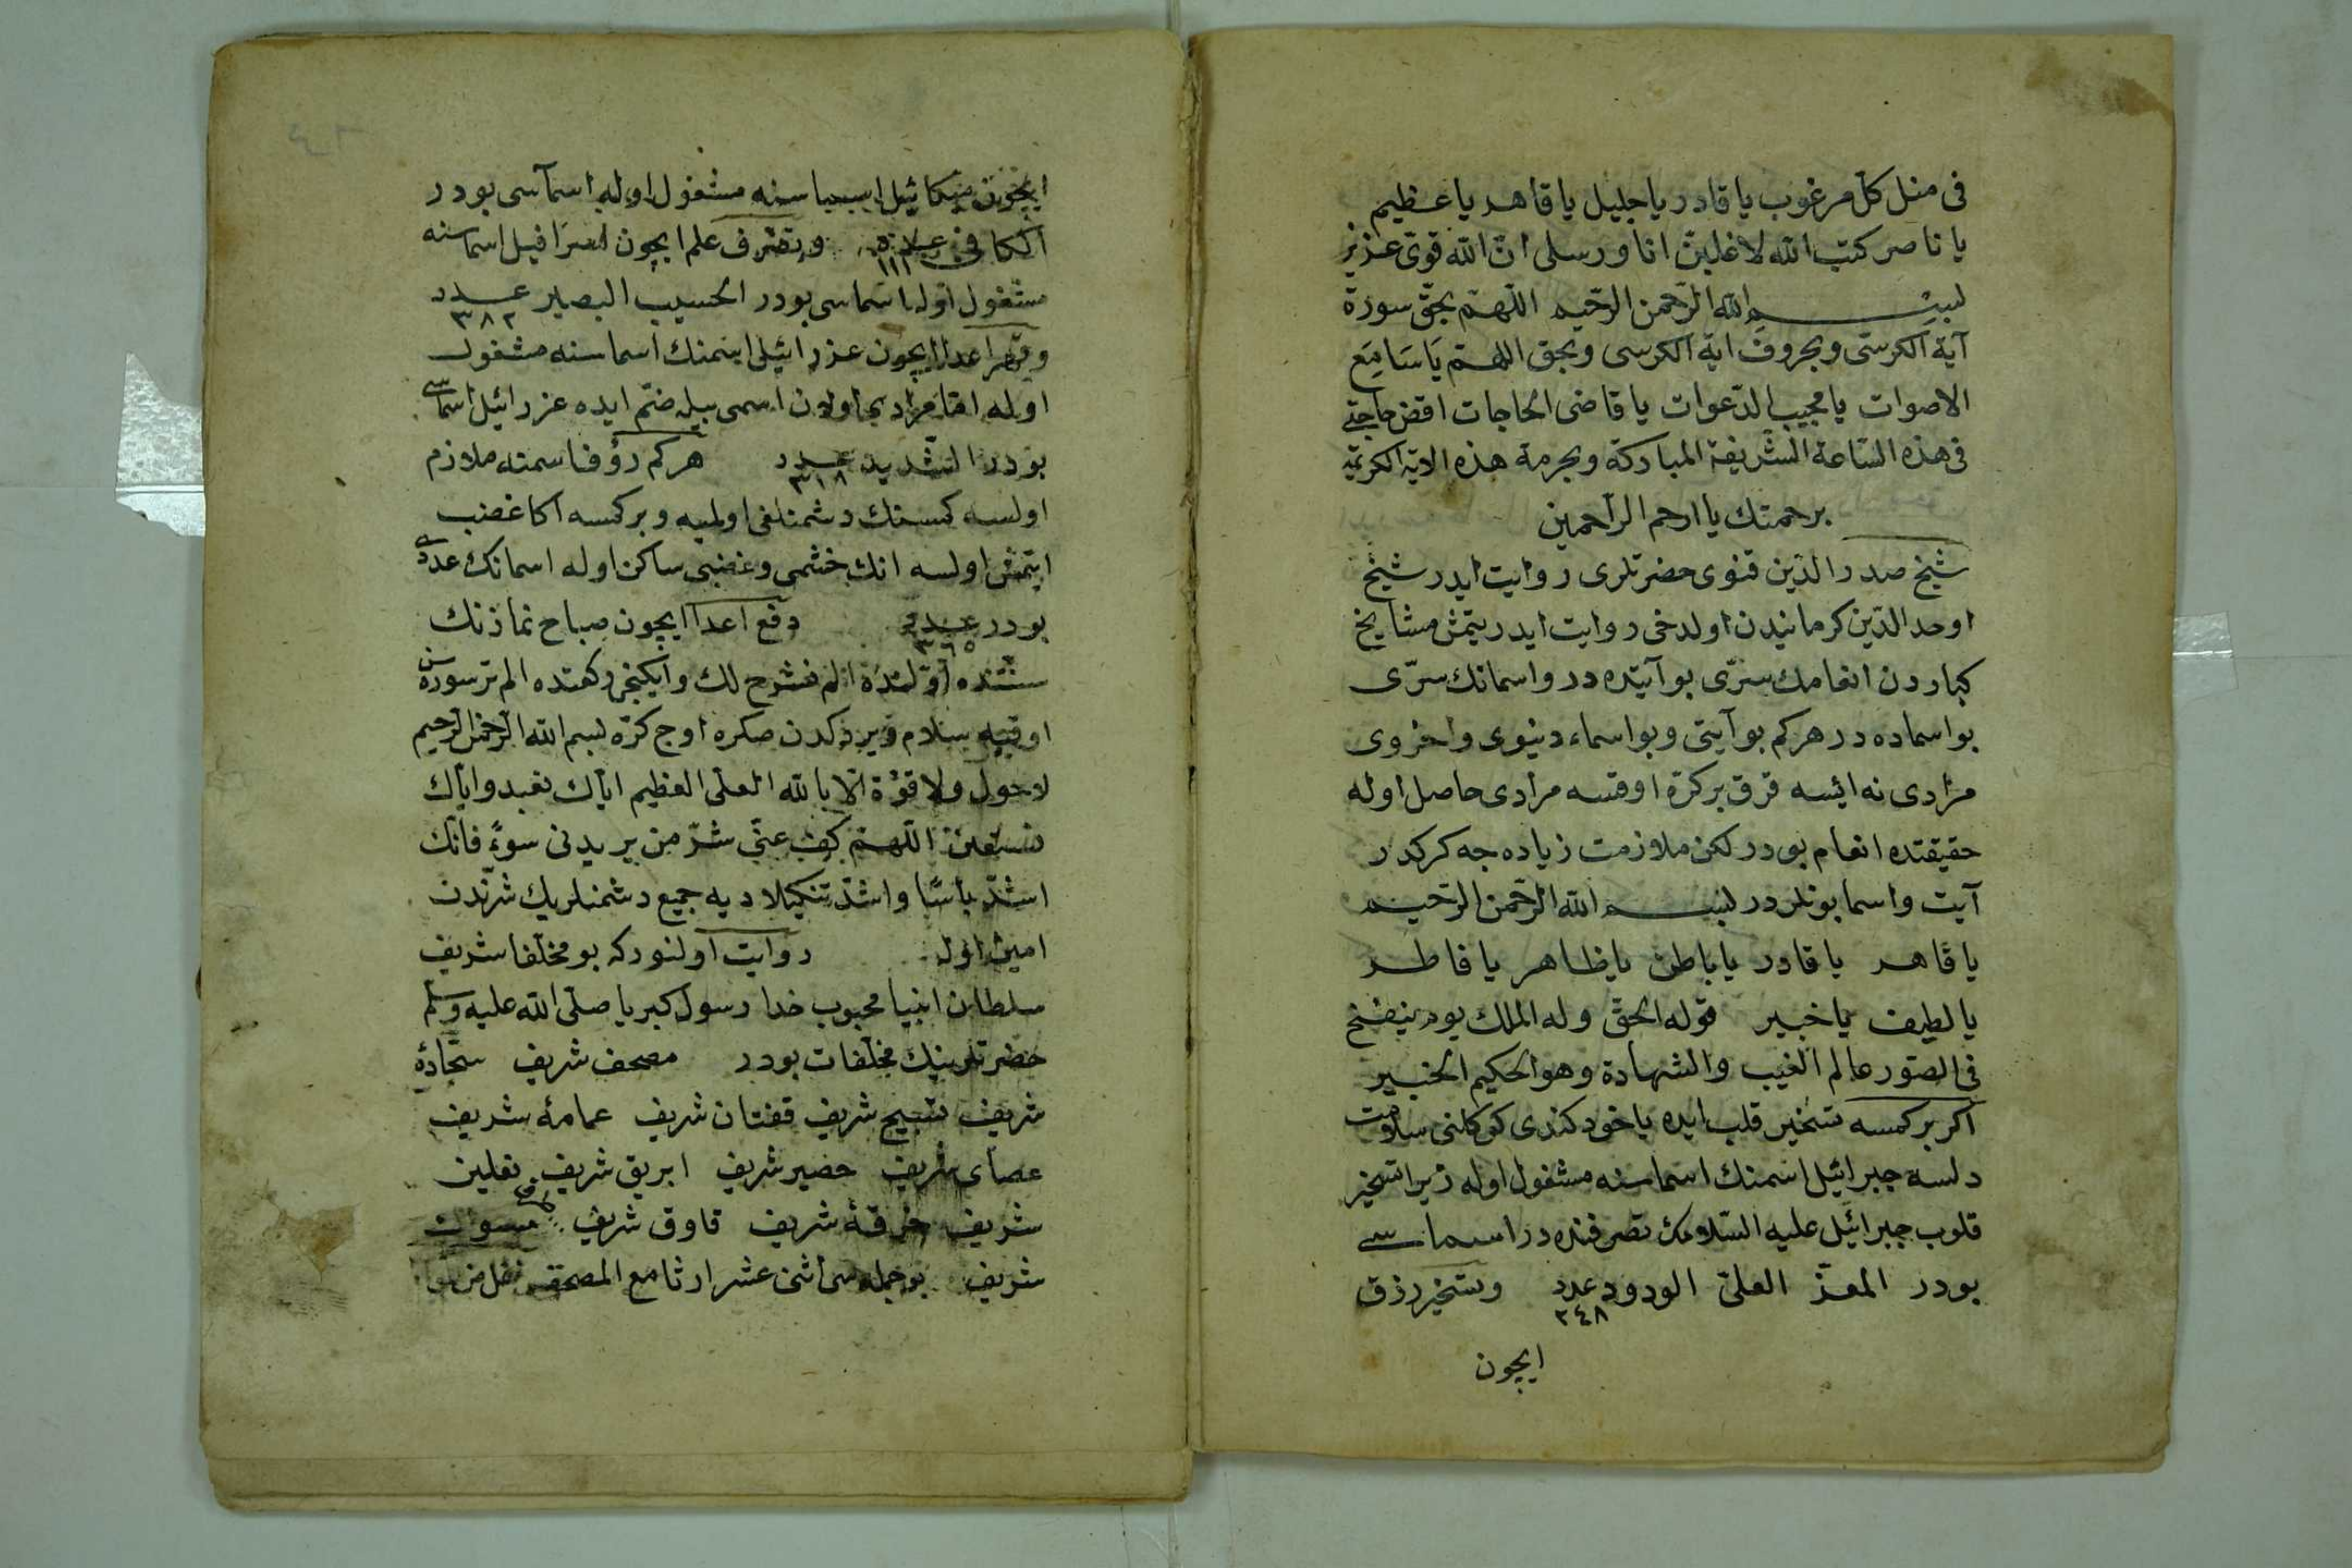 فى منل كل مرغوب يا قادر يا جليل يا قاهر يا عظيم
يا ناصر كتب الله لاغلبن انا ورسلى ان الله قوى عزيز
بسم الله الرحمن الرحيم اللهم بحق سورة
آية الكرسى وبحروف اية الكرسى وبحق اللهم يا سامع
الاصوات يا مجيب الدعوات يا قاضى الحاجات اقض حاجتى
فى هذه الساعة الشريفة المباركة وبحرمة هذه الاية الكريمة
برحمتك يا ارحم الراحمين
شيخ صدر الدين قنوى حضرتلرى روايت ايدر شيخ
اوحد الدين كرمانيدن اولدخى روايت ايدر يتمش مشايخ
كباردن انعامك سرى بو آيتده در واسمانك سرى
بو اسماده در هركم بو آيتى وبو اسماء دنيوى واخروى
مرادى نه ايسه قرق بر كرة اوقسه مرادى حاصل اوله
حقيقتده انعام بودر لكن ملازمت زياده جه كركدر
آيت واسما بونلردر بسم الله الرحمن الرحيم
يا قاهر يا قادر يا باطن يا ظاهر يا فاطر
يا لطيف يا خبير قوله الحق وله الملك يوم ينفخ
فى الصور عالم الغيب والشهادة وهو الحكيم الخبير
اكر بر كمسه تسخير قلب ايده يا خود كندى كوكلنى سلامت
دلسه جبرائيل اسمنك اسماسنه مشغول اوله زيرا تسخير
قلوب جبرائيل عليه السلامك تصرفنده در اسماسى
بودر المعز العلى الودود عدد ٢٤٨ وتسخير رزق
ايچون
ايچون ميكائيل اسماسنه مشغول اوله اسماسى بودر
الكافى عدد ١١١ وتصرف علم ايچون اسرافيل اسماسنه
مشغول اوله اسماسى بودر الحسيب البصير عدد ٣٨٢
وقهر اعدا ايچون عزرائيل اسمنك اسماسنه مشغول
اوله اما مرادى اولان اسمى بيله ضم ايده عزرائيل اسماسى
بودر الشديد عدد ٣١٨ هركم رؤف اسمنه ملازم
اولسه كمسنك دشمنلغى اولميه وبر كمسه اكا غضب
ايتمش اولسه انك خشمى وغضبى ساكن اوله اسمانك عددى
بودر عدد ٣٦٥ دفع اعدا ايچون صباح نمازنك
سنتنده اولنده الم نشرح لك وايكنجى ركعتده الم تر سورهسن
اوقيه سلام ويردكدن صكره اوج كره بسم الله الرحمن الرحيم
لا حول ولا قوة الا بالله العلى العظيم اياك نعبد واياك
نستعين اللهم كف عنى شر من يريدنى سوء فانك
اشد باسا واشد تنكيلا ديه جميع دشمنلريك شرندن
امين اوله روايت اولنوركه بو مخلفا شريف
سلطان انبيا محبوب خدا رسول كبريا صلى الله عليه وسلم
حضرتلرينك مخلفات بودر مصحف شريف سجادهٔ
شريف تسبيح شريف قفتان شريف عمامهٔ شريف
عصاى شريف حضير شريف ابريق شريف نعلين
شريف خرقهٔ شريف قاوق شريف مسوات
شريف بو جمله سى اثنى عشر ارثا مع المصحف نقل من